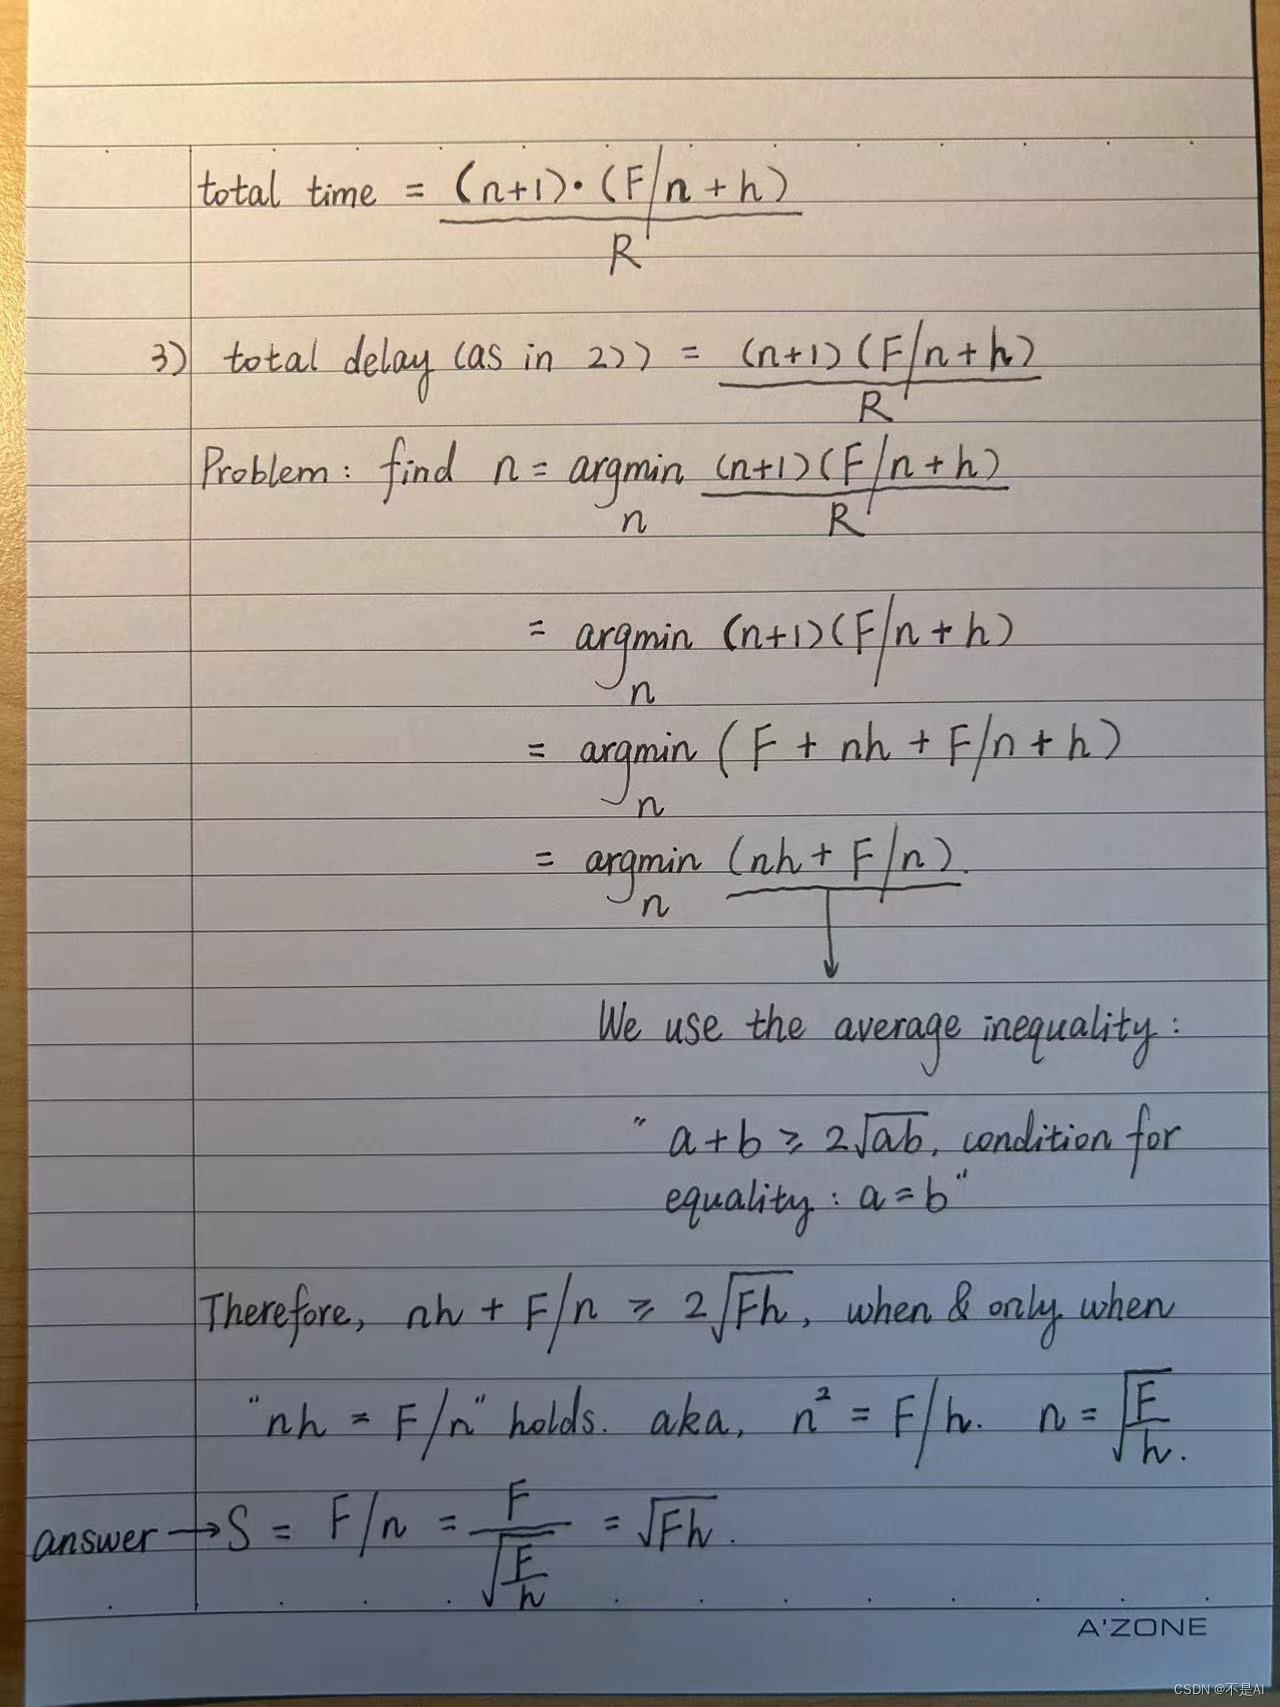 total time = (n+1)·(F/n + h)
R
3) total delay (as in 2)) = (n+1)(F/n+h)
R
Problem: find n = argmin (n+1)(F/n+h)
n R
= argmin (n+1)(F/n+h)
n
= argmin (F + nh + F/n + h)
n
= argmin (nh + F/n).
n
We use the average inequality:
" a+b ≥ 2√ab, condition for
equality: a=b"
Therefore, nh + F/n ≥ 2√Fh, when & only when
"nh = F/n" holds. aka, n² = F/h. n = √F/h.
answer → S = F/n = F/√F/h = √Fh.
A'ZONE
CSDN @不是AI